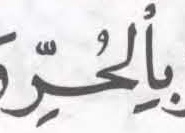 بِٱلْحُرِّ